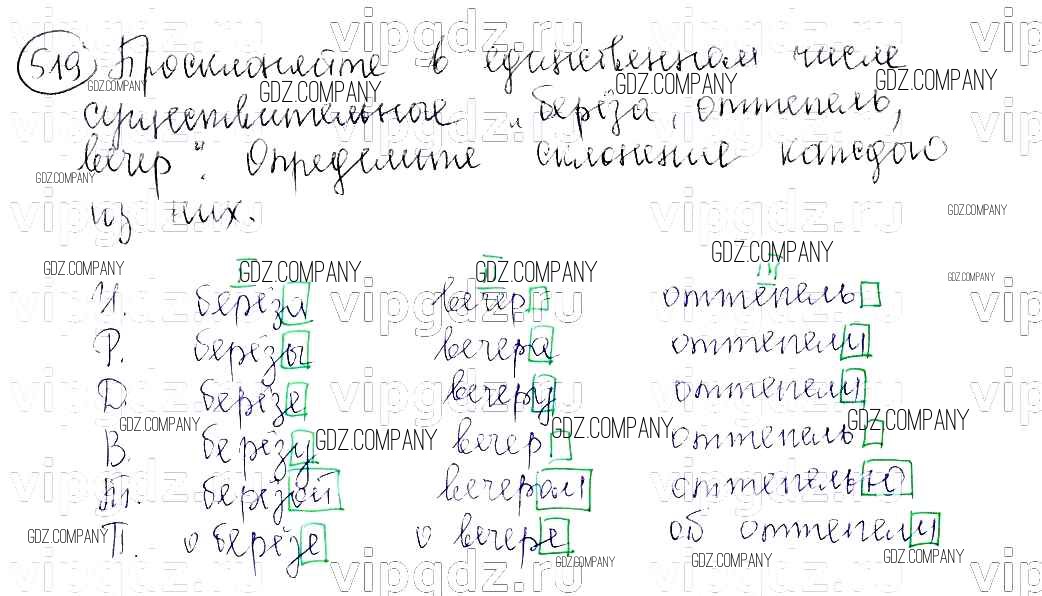 519 Просклоняйте в единственном числе
существительные „берёза, оттепель,
вечер“. Определите склонение каждого
из них.
I II III
И. берёза вечер оттепель
Р. берёзы вечера оттепели
Д. берёзе вечеру оттепели
В. берёзу вечер оттепель
Т. берёзой вечером оттепелью
П. о берёзе о вечере об оттепели
vipgdz.ru
GDZ.COMPANY